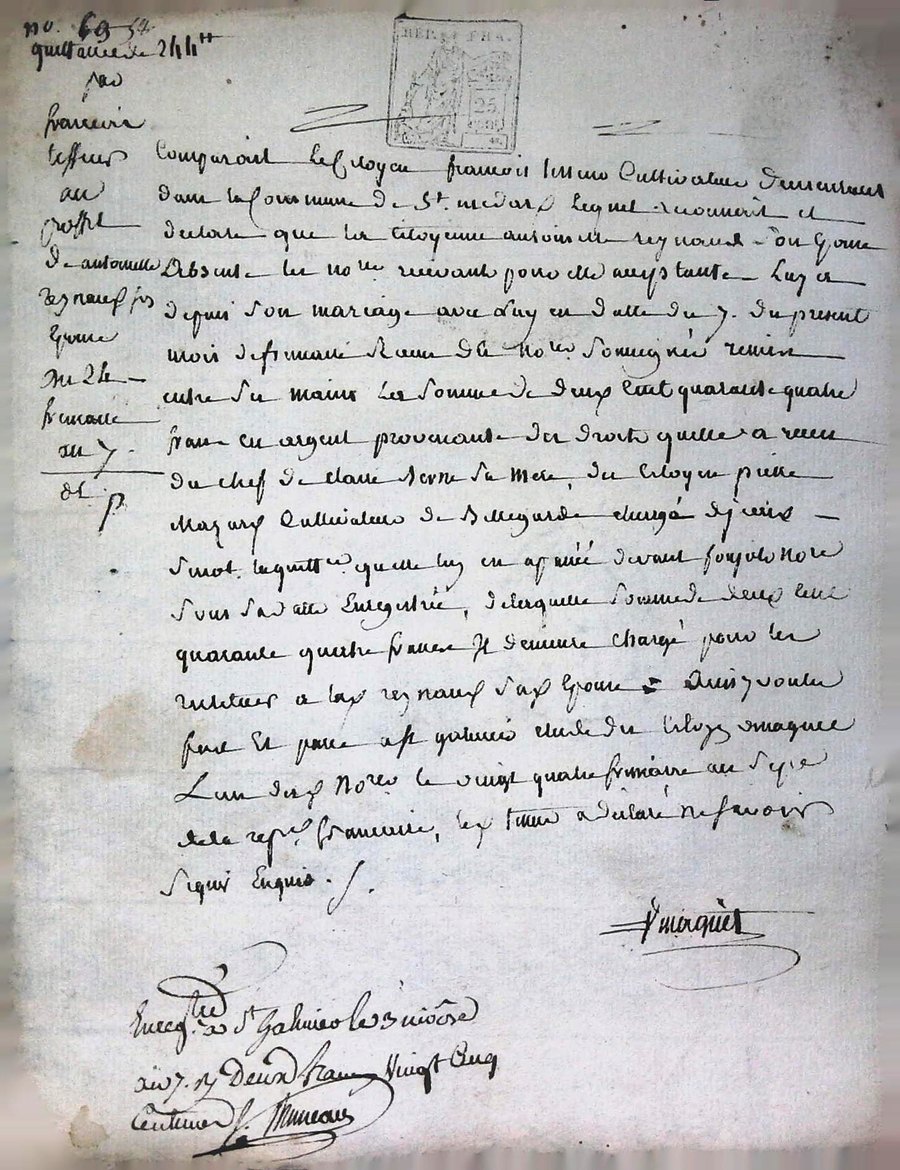 no. 69
quittance de 244tt
par
francois
tessieur
au
proffit
de antoinette
reynaud sa
Epouse
Du 24
frimaire
an 7.
REP. FRA.
25
Comparoit le Citoyen francois Cultivateur Demeurant
dans la Commune de St. medard Lequel reconnoit et
declare que la Citoyenne antoinette reynaud son Epouse
Absente les nores recevant pour elle acceptante Luy a
depuis son mariage avec Luy en datte du 7. du present
mois de frimaire Receu de Nore Soussigné remis
entre ses mains La Somme de deux Cent quarante quatre
francs en argent provenante des droits quelle a receu
du chef de Claire sa mere, du Citoyen pierre
Mazard Cultivateur de Bellegarde chargé
Suivt. la quittce. quelle luy en a passée devant Nore
Sous sa datte Enregistrée, de laquelle Somme de deux Cent
quarante quatre francs Il demeure chargé pour les
restituer a lad reynaud Sad Epouse = Ainsy voulu
fait Et passé a St galmier etude du Citoyen
L'un desd Nores le vingt quatre frimaire an Sept
de la repue. francaise, led a déclaré ne savoir
Signer Enquis.
Enregtré. a St Galmier le 3 nivôse
an 7. Deux francs Vingt Cinq
Centimes